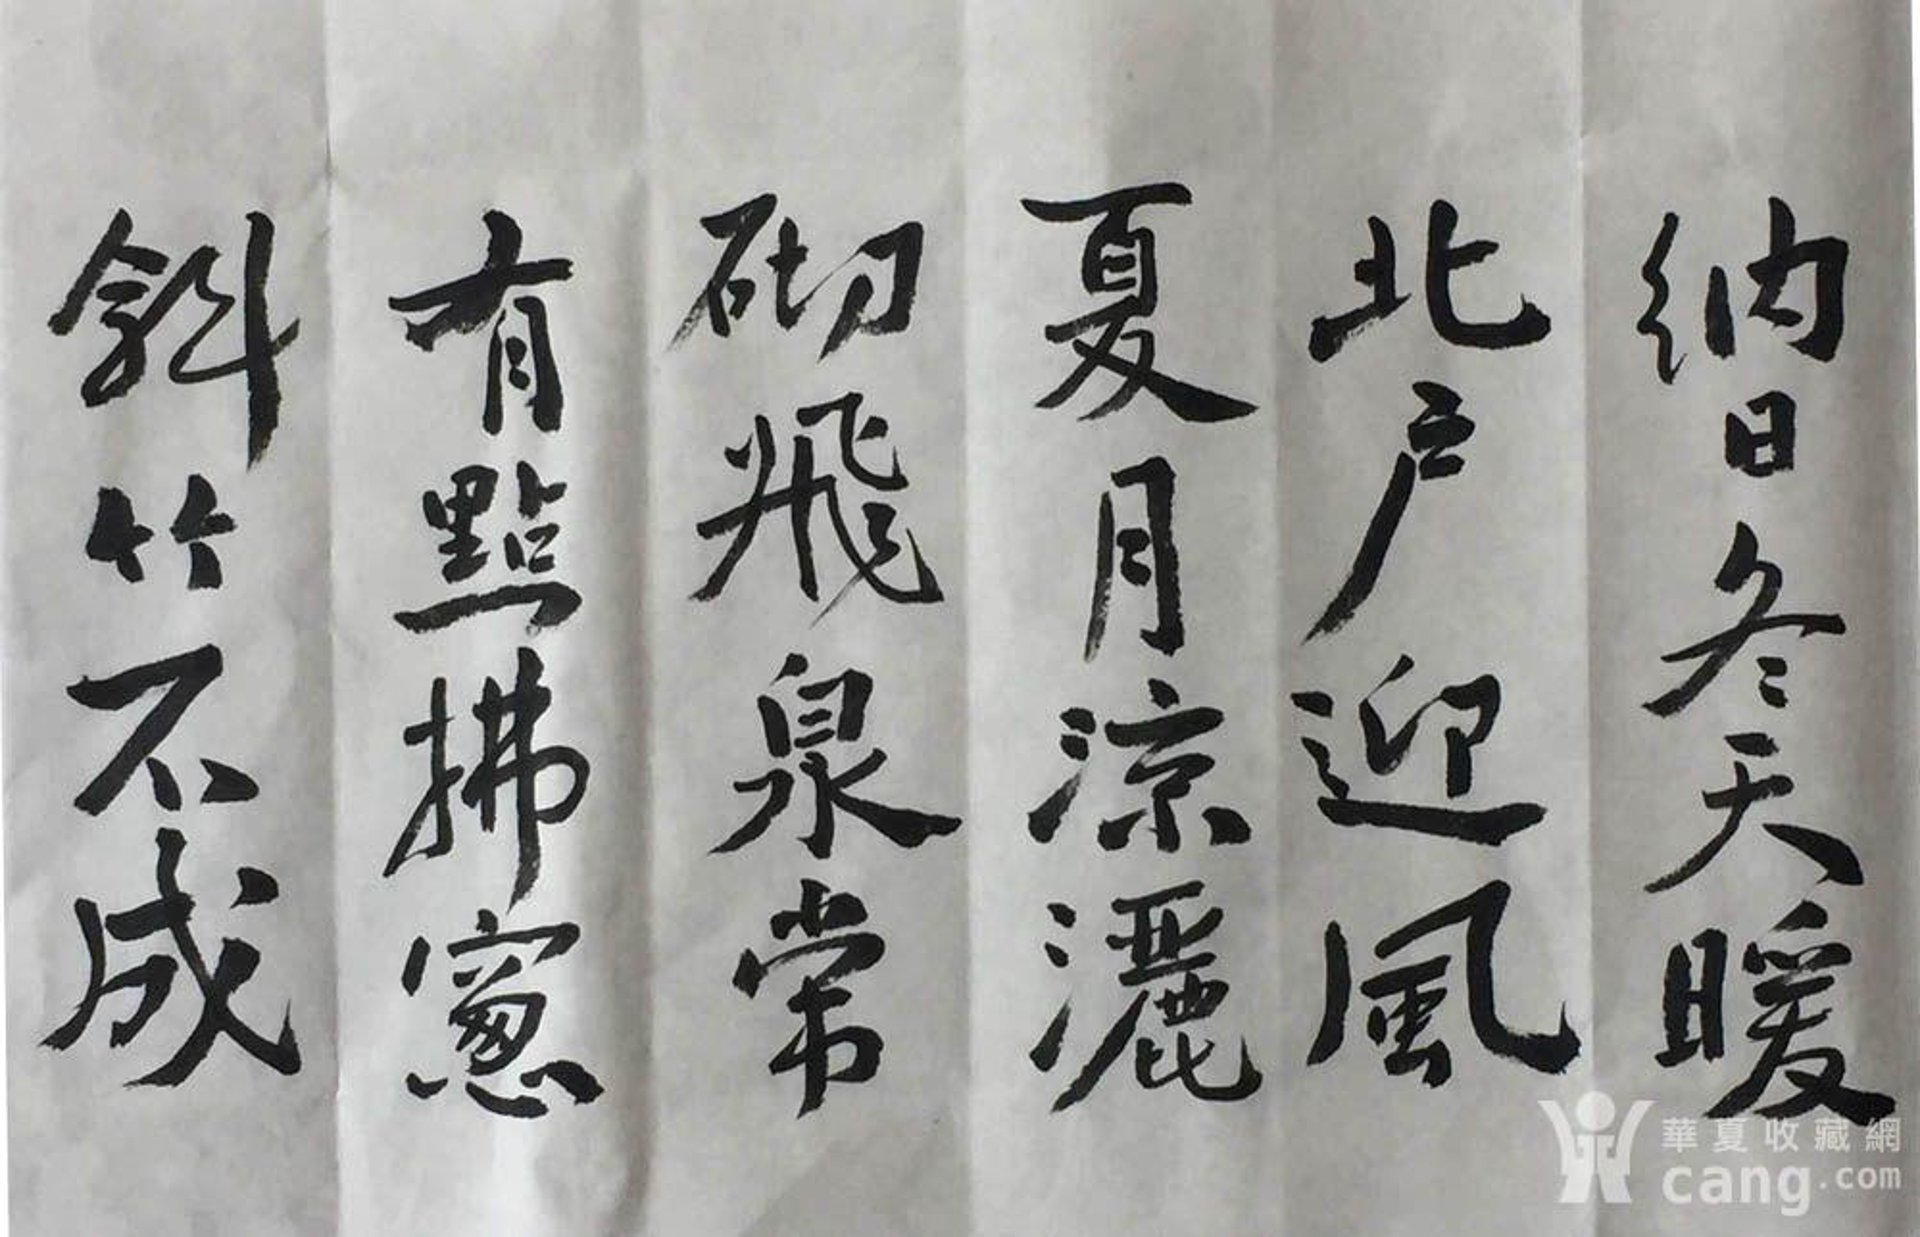 納日冬天暖
北戶迎風
夏月涼灑
砌飛泉常
有點拂窻
斜竹不成
華夏收藏網
cang.com